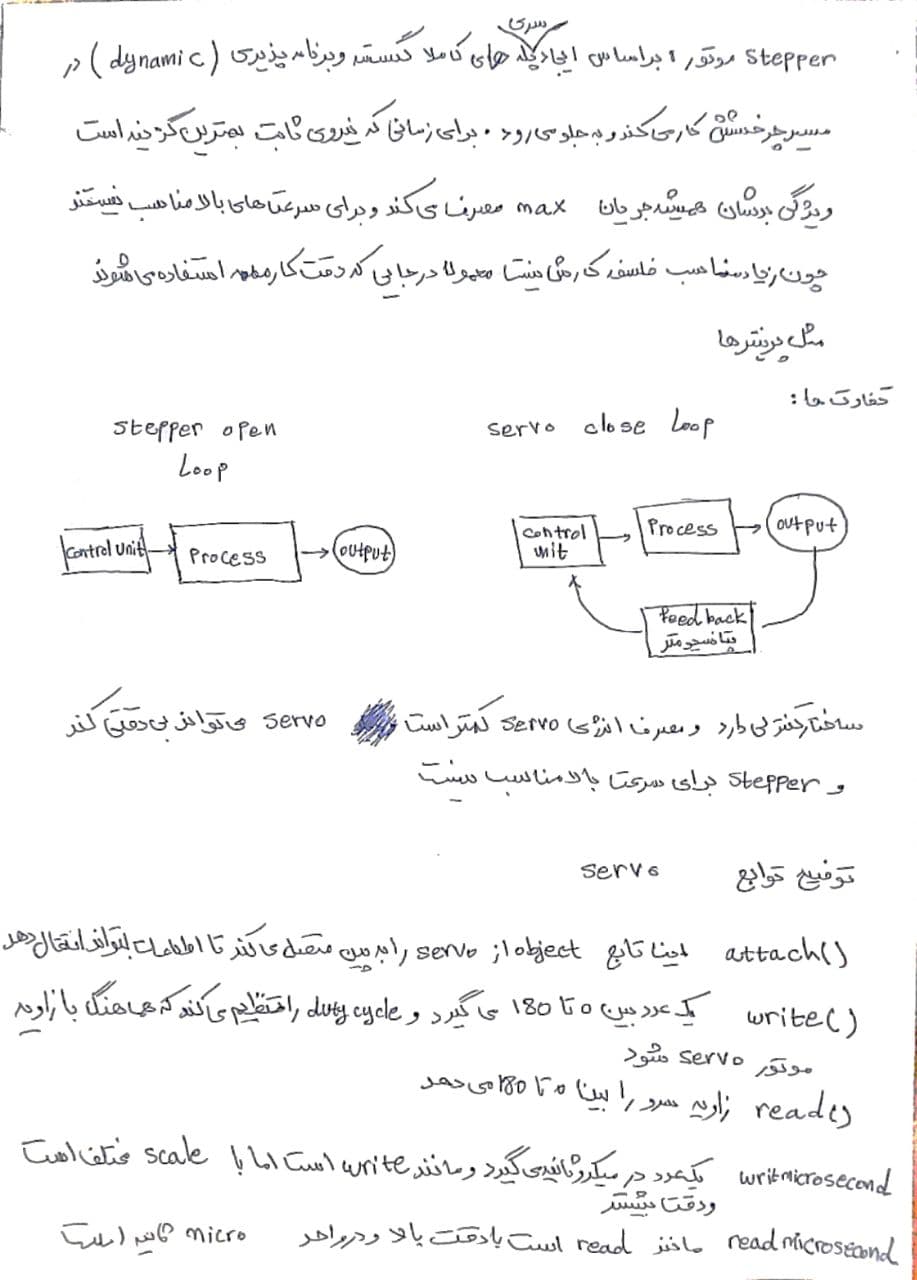 سری
stepper موتور : براساس ایجاد پله های کاملا گسسته و برنامه پذیری (dynamic) در
مسیر چرخشش کار می کند و به جلو می رود . برای زمانی که نیروی ثابت بهترین گزینه است
ویژگی بدشان همیشه جریان max مصرف می کند و برای سرعت های بالا مناسب نیستند
چون زیاد مناسب فلسفه کارش نیست معمولا در جایی که دقت کار مهمه استفاده می شوند
مثل پرینترها
تفاوت ها :
servo close loop
stepper open
loop
control unit
process
output
control
unit
process
output
feedback
پتانسیومتر
ساختار کنترلی دارد و مصرف انرژی servo کمتر است و servo می تواند بی دقتی کند
و stepper برای سرعت بالا مناسب نیست
توضیح توابع servo
attach() این تابع object از servo را به پین متصل می کند تا اطلاعات بتواند انتقال دهد
write() یک عدد بین 0 تا 180 می گیرد و duty cycle را تنظیم می کند که هماهنگ با زاویه
موتور servo شود
read() زاویه سرو را بین 0 تا 180 می دهد
writmicrosecond یک عدد در میکروثانیه می گیرد و مانند write است اما با scale مختلف است
و دقت بیشتر
readmicrosecond مانند read است با دقت بالا و در واحد micro ثانیه است